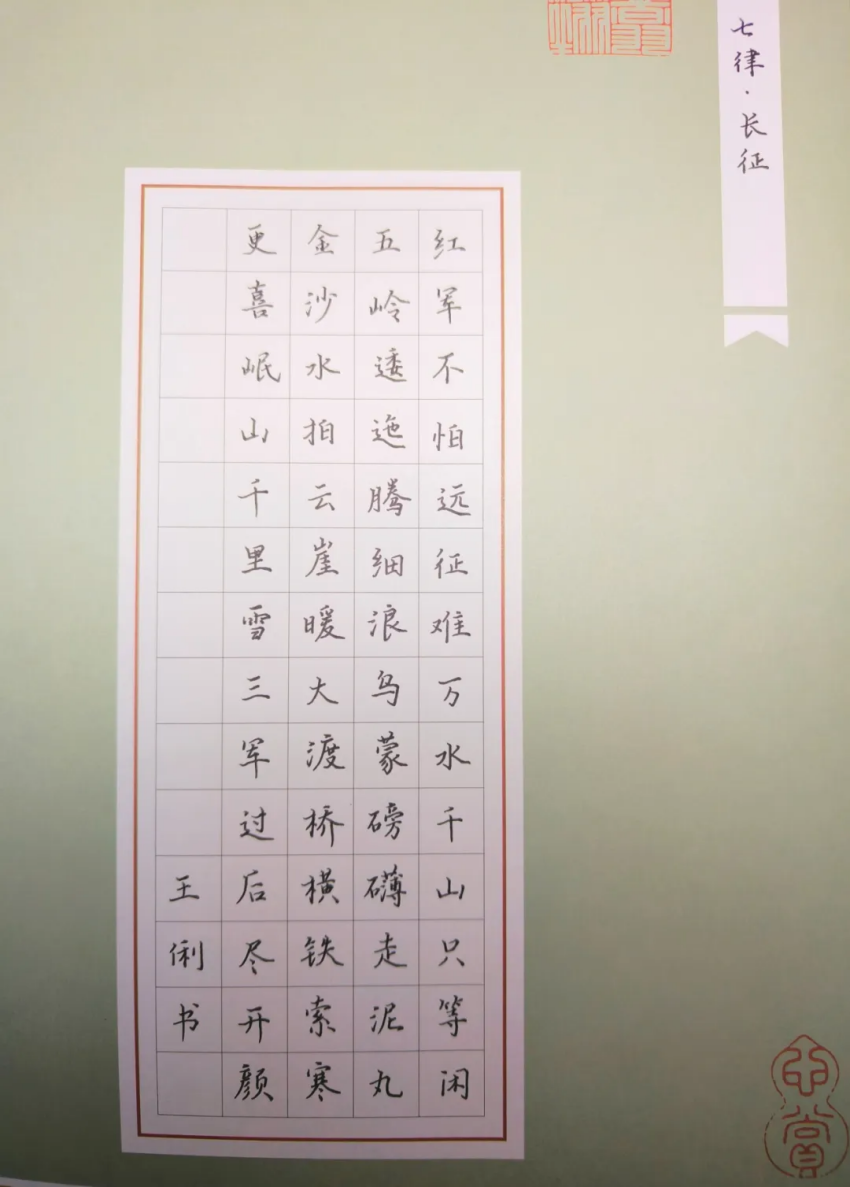 七律·长征
红军不怕远征难万水千山只等闲
五岭逶迤腾细浪乌蒙磅礴走泥丸
金沙水拍云崖暖大渡桥横铁索寒
更喜岷山千里雪三军过后尽开颜
王俐书